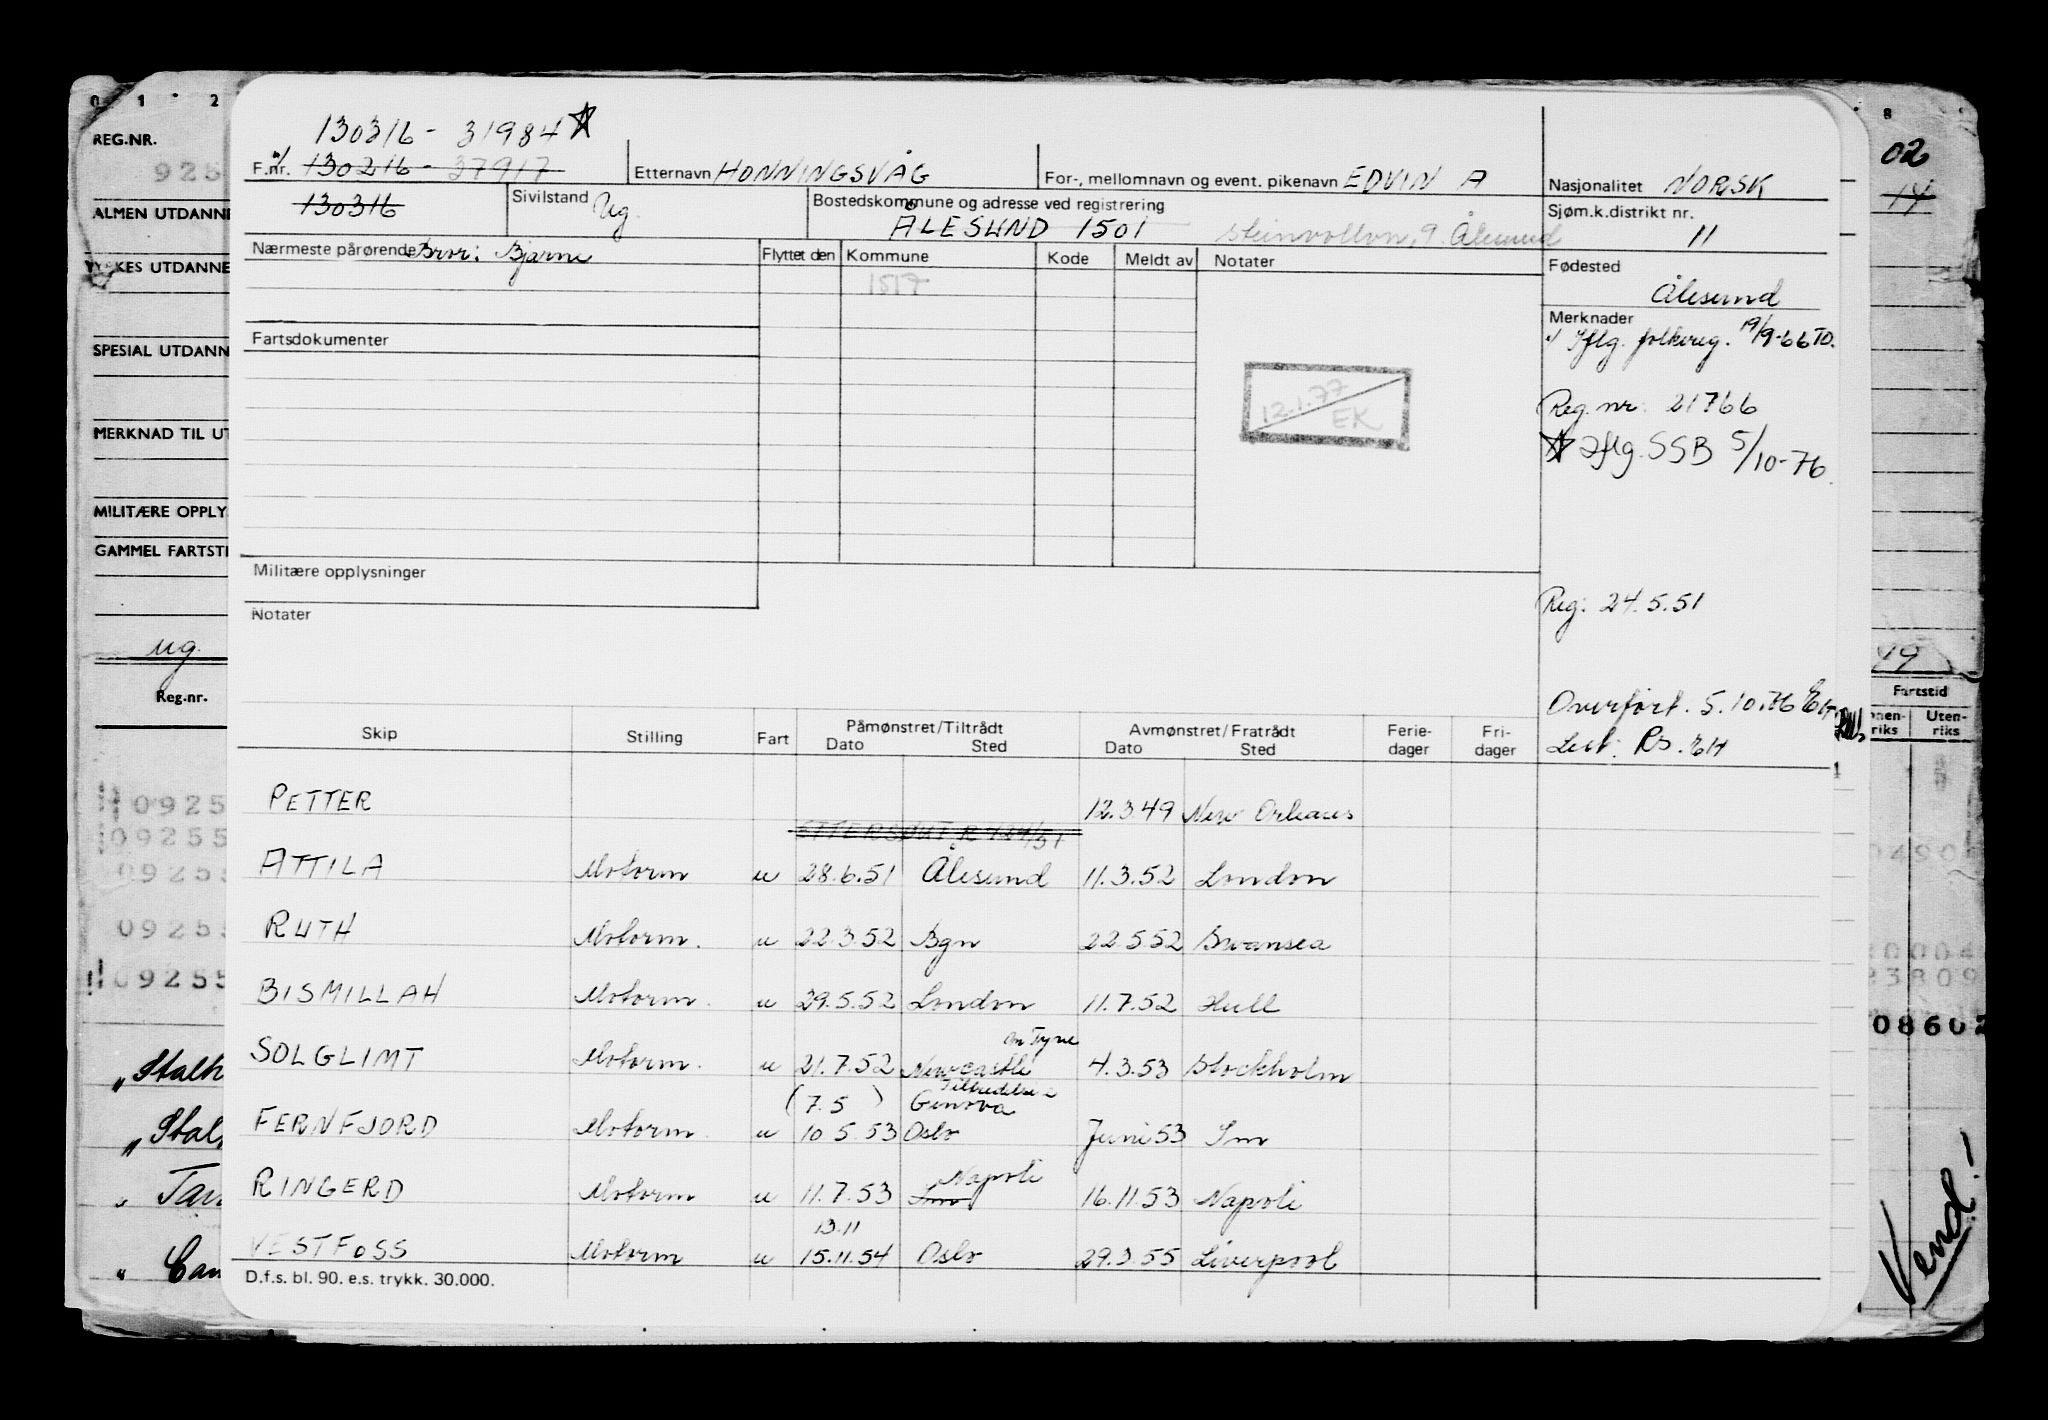 0 1 2 8
130316 - 31984 ☆
REG.NR.
925
02
F.nr. 130216 - 37917
Etternavn HONNINGSVÅG
For-, mellomnavn og event. pikenavn EDVIN A
Nasjonalitet NORSK
14
130316
Sivilstand Ug.
Bostedskommune og adresse ved registrering
ÅLESUND 1501 Steinvollvn. 9. Ålesund
Sjøm.k.distrikt nr.
11
ALMEN UTDANNE
Nærmeste pårørende Bror: Bjarne
Flyttet den Kommune Kode Meldt av Notater
Fødested
Ålesund
YRKES UTDANNE
1517
Merknader
Iflg. folkereg. 19/9-66 TO.
Fartsdokumenter
SPESIAL UTDANN
12.1.77
EK
Reg. nr: 21766
☆ Iflg. SSB 5/10-76.
MERKNAD TIL UT
MILITÆRE OPPLY
GAMMEL FARTSTI
Militære opplysninger
Reg: 24.5.51
Notater
ug.
49
Reg.nr.
Fartstid
Overført. 5.10.76 EH
nen-riks Uten-riks
Skip Stilling Fart Påmønstret/Tiltrådt Avmønstret/Fratrådt Ferie- Fri-
Dato Sted Dato Sted dager dager
PETTER 12.3.49 New Orleans
ETTERSØKT R 424/51
ATTILA Motorm u 28.6.51 Ålesund 11.3.52 London
RUTH Motorm. u 22.3.52 Bgn 22.5.52 Swansea
BISMILLAH Motorm. u 29.5.52 London 11.7.52 Hull
on Tyne
SOLGLIMT Motorm. u 21.7.52 Newcastle 4.3.53 Stockholm
(7.5) Tiltredelse i Genova
FERNFJORD Motorm. u 10 5.53 Oslo Juni 53
Napoli
RINGERD Motorm u 11.7.53 16.11.53 Napoli
13.11
VESTFOSS Motorm u 15.11.54 Oslo 29.3.55 Liverpool
D.f.s. bl. 90. e.s. trykk. 30.000.
0925
09255
09255
09255
09255
0490
20004
23809
08602
"Stalh
"Stal
" Tan
" Can
Vend!